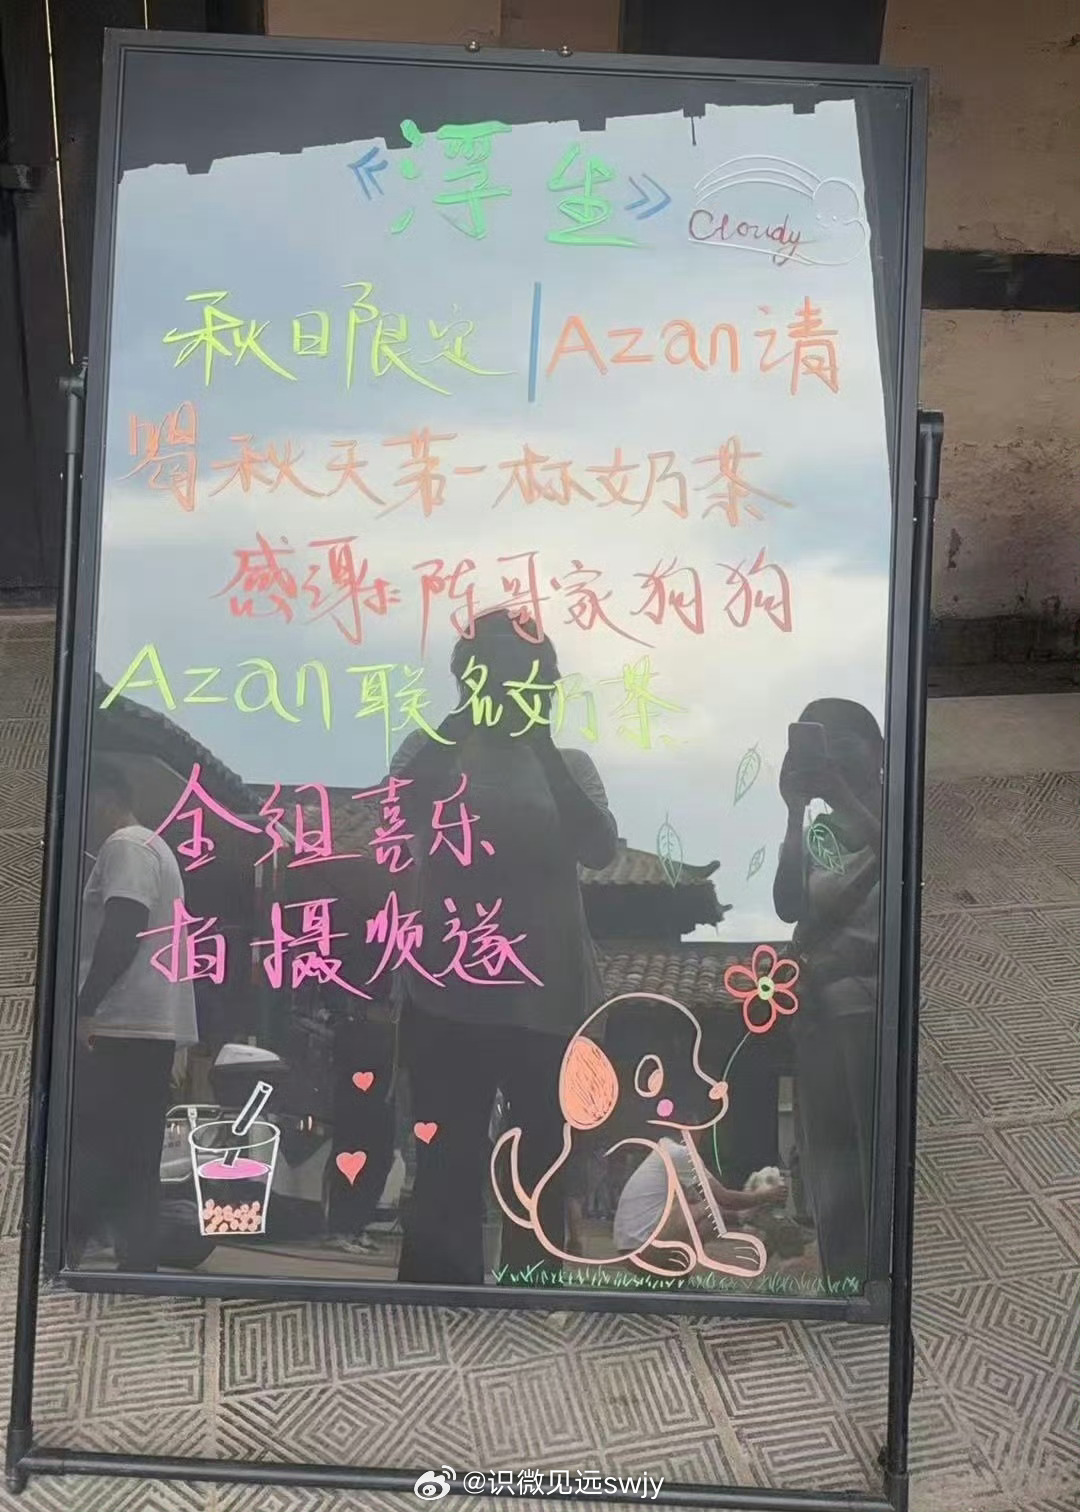 《浮生》
Cloudy
秋日限定|Azan请
喝秋天第一杯奶茶
感谢陈哥家狗狗
Azan联名奶茶
全组喜乐
拍摄顺遂
@识微见远swjy